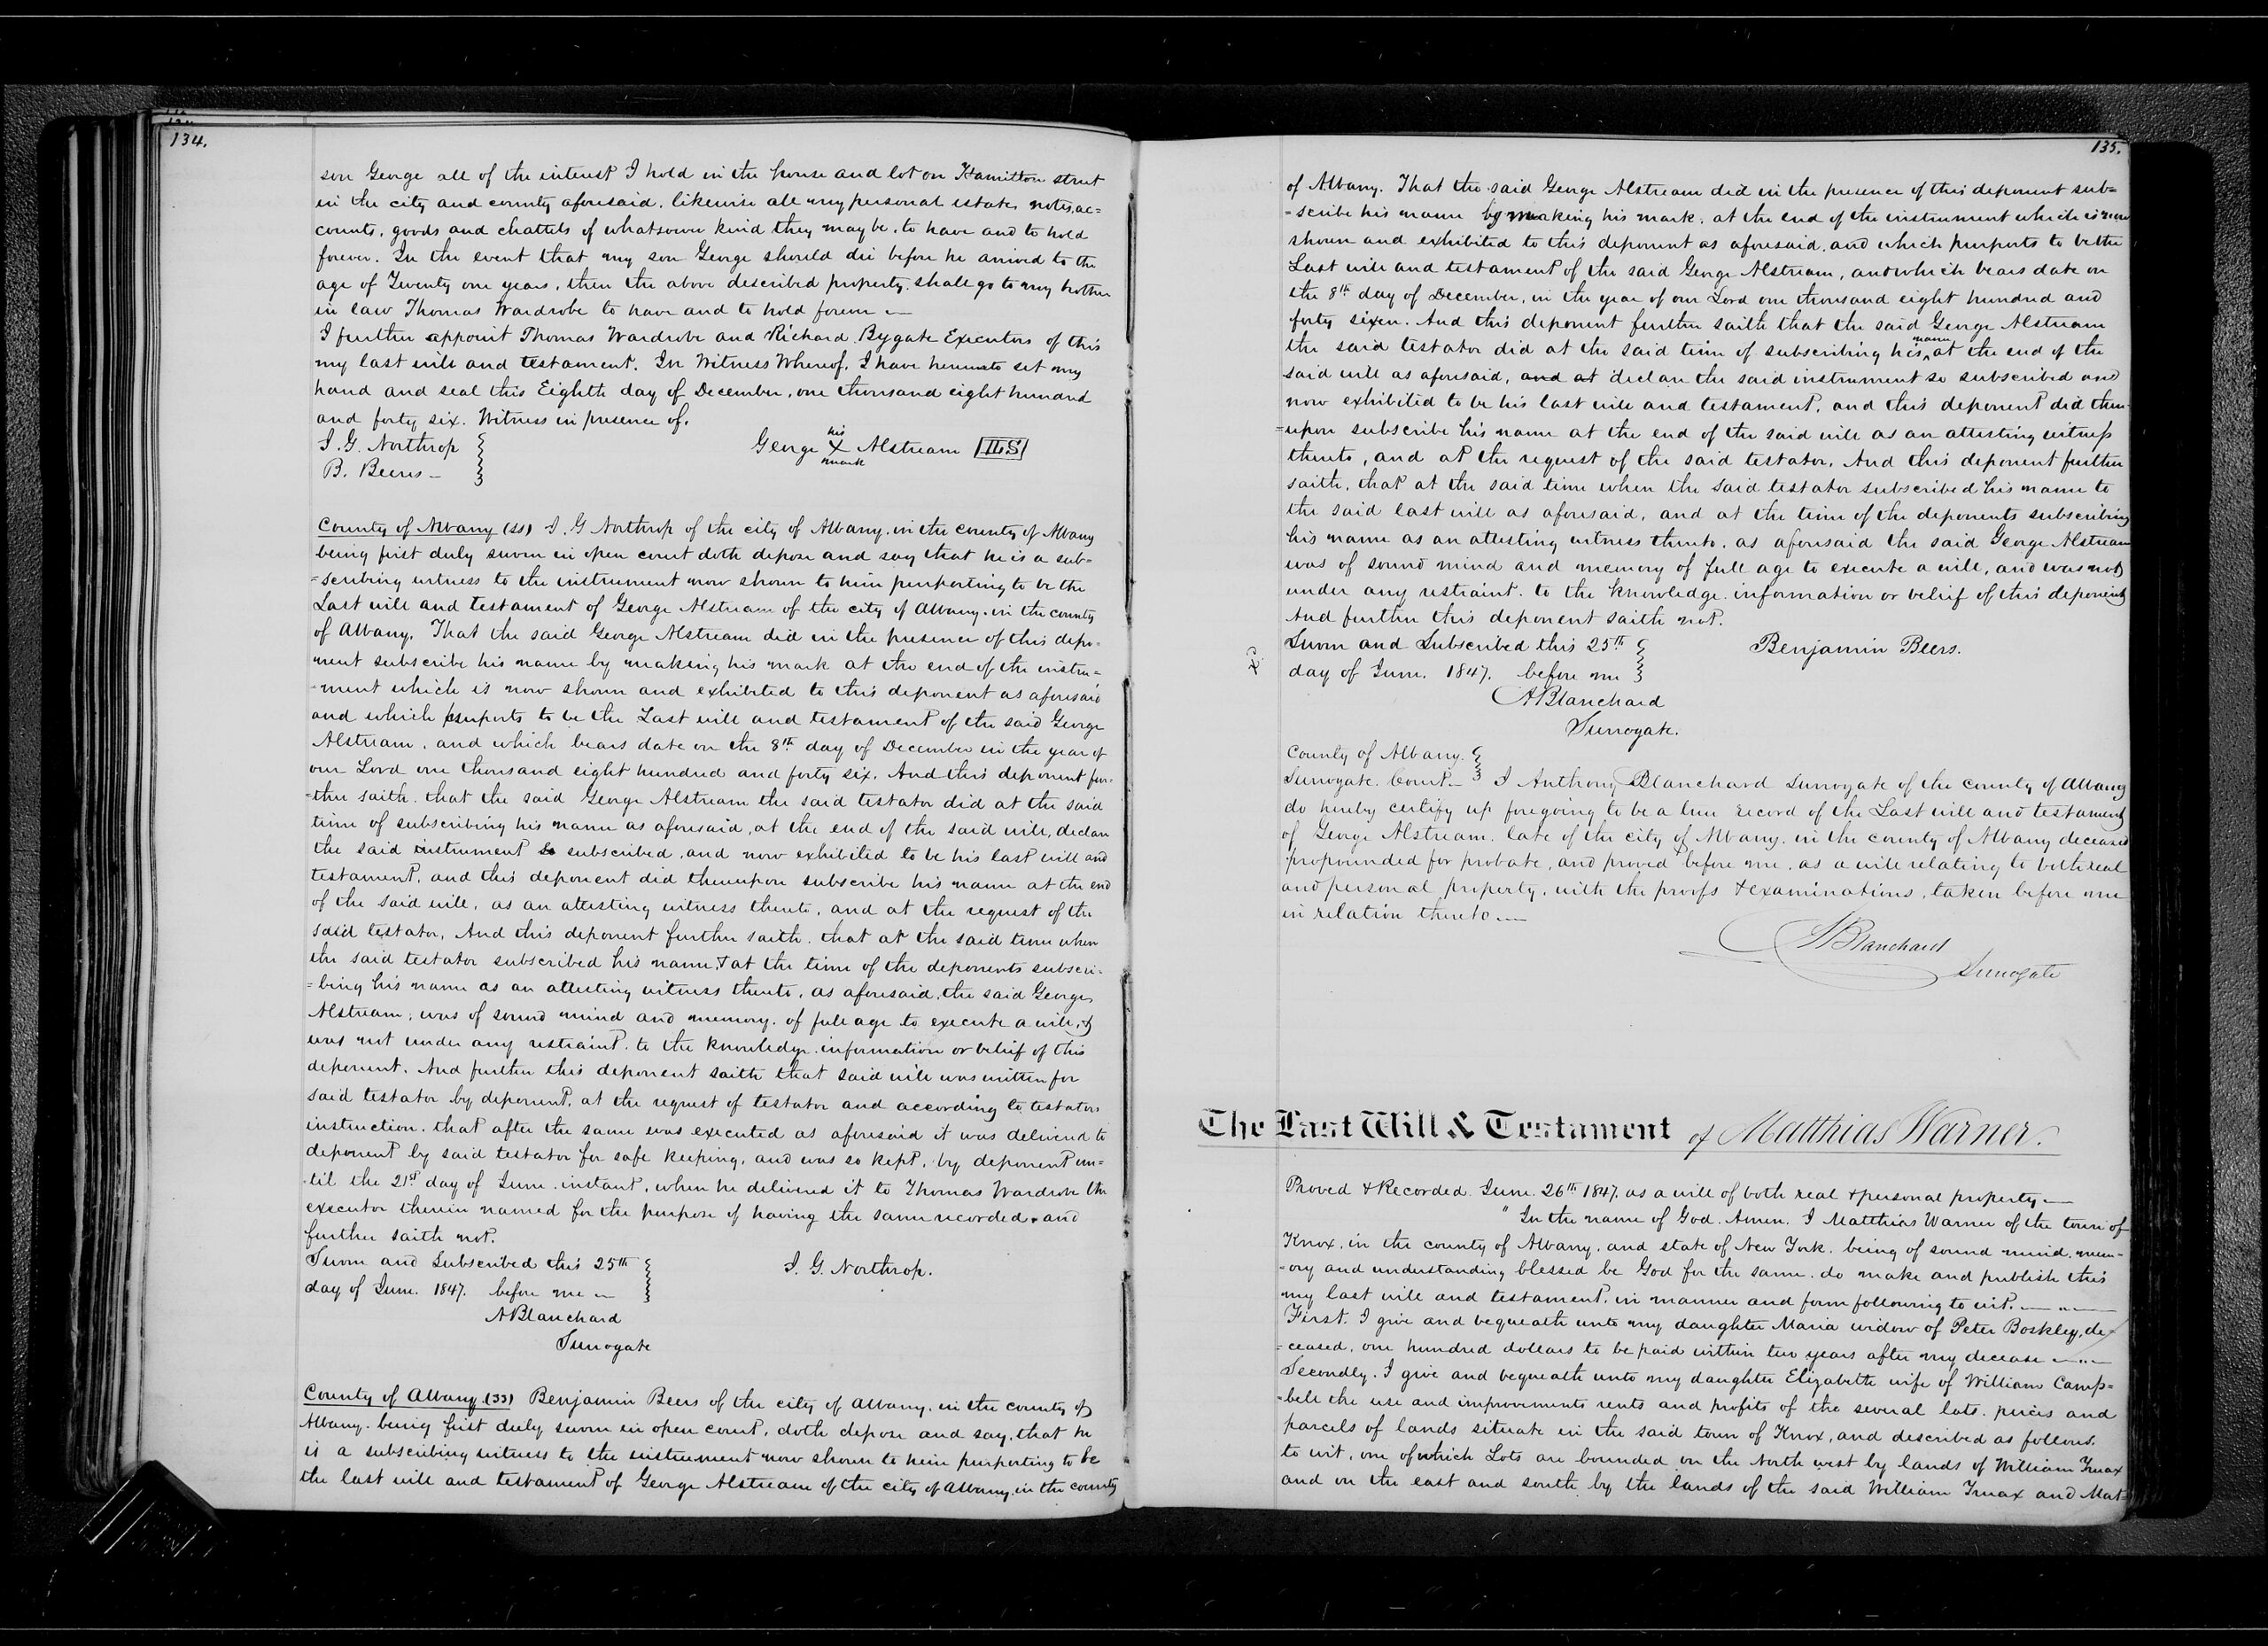 134.
son George all of the interest I hold in the house and lot on Hamilton street
in the city and county aforesaid, likewise all my personal estate, notes, ac=
counts, goods and chattels of whatsoever kind they may be, to have and to hold
forever. In the event that my son George should die before he arrived to the
age of Twenty one years, then the above described property shall go to my brother
in law Thomas Wardrobe to have and to hold forever —
I further appoint Thomas Wardrobe and Richard Bygate Executors of this
my last will and testament. In Witness Whereof, I have hereunto set my
hand and seal this Eighth day of December, one thousand eight hundred
and forty six. Witness in presence of.
I. G. Northrop
B. Beers —
George his X mark Alstream LS
County of Albany (SS) I. G Northrop of the city of Albany in the county of Albany
being first duly sworn in open court doth depose and say that he is a sub=
=scribing witness to the instrument now shown to him purporting to be the
Last will and testament of George Alstream of the city of Albany in the county
of Albany. That the said George Alstream did in the presence of this depo-
nent subscribe his name by making his mark at the end of the instru=
=ment which is now shown and exhibited to this deponent as aforesaid
and which purports to be the Last will and testament of the said George
Alstream, and which bears date on the 8th day of December in the year of
our Lord one thousand eight hundred and forty six. And this deponent fur=
=ther saith that the said George Alstream the said testator did at the said
time of subscribing his name as aforesaid, at the end of the said will, declare
the said instrument so subscribed, and now exhibited to be his last will and
testament, and this deponent did thereupon subscribe his name at the end
of the said will, as an attesting witness thereto, and at the request of the
said testator, And this deponent further saith, that at the said time when
the said testator subscribed his name, & at the time of the deponents subscri=
=bing his name as an attesting witness thereto, as aforesaid, the said George
Alstream, was of sound mind and memory, of full age to execute a will, &
was not under any restraint, to the knowledge, information or belief of this
deponent. And further this deponent saith that said will was written for
said testator by deponent, at the request of testator and according to testators
instruction, that after the same was executed as aforesaid it was delivered to
deponent by said testator for safe keeping, and was so kept, by deponent un=
-til the 21st day of June instant, when he delivered it to Thomas Wardrobe the
executor therein named for the purpose of having the same recorded. and
further saith not.
Sworn and Subscribed this 25th
day of June. 1847. before me —
I. G. Northrop.
ABlanchard
Surrogate
County of Albany (SS) Benjamin Beers of the city of Albany, in the county of
Albany, being first duly sworn in open court, doth depose and say, that he
is a subscribing witness to the instrument now shown to him purporting to be
the last will and testament of George Alstream of the city of Albany, in the county
135.
of Albany. That the said George Alstream did in the presence of this deponent sub=
=scribe his name by making his mark, at the end of the instrument which is now
shown and exhibited to this deponent as aforesaid, and which purports to be the
Last will and testament of the said George Alstream, and which bears date on
the 8th day of December, in the year of our Lord one thousand eight hundred and
forty sixen. And this deponent further saith that the said George Alstream
the said testator did at the said time of subscribing his name at the end of the
said will as aforesaid, and at declare the said instrument so subscribed and
now exhibited to be his last will and testament, and this deponent did there-
=upon subscribe his name at the end of the said will as an attesting witness
thereto, and at the request of the said testator. And this deponent further
saith, that at the said time when the said testator subscribed his name to
the said last will as aforesaid, and at the time of the deponents subscribing
his name as an attesting witness thereto, as aforesaid the said George Alstream
was of sound mind and memory of full age to execute a will, and was not
under any restraint, to the knowledge, information or belief of this deponent
And further this deponent saith not.
Sworn and Subscribed this 25th
day of June. 1847. before me
Benjamin Beers.
ABlanchard
Surrogate.
County of Albany.
Surrogate Court — I Anthony Blanchard Surrogate of the county of Albany
do hereby certify up foregoing to be a true record of the Last will and testament
of George Alstream, late of the city of Albany, in the county of Albany deceased
propounded for probate, and proved before me, as a will relating to both real
and personal property, with the proofs & examinations, taken before me
in relation thereto. —
ABlanchard
Surrogate
The Last Will & Testament of Matthias Warner.
Proved & Recorded June 26th 1847. as a will of both real & personal property —
"In the name of God. Amen. I Matthias Warner of the town of
Knox, in the county of Albany, and state of New York, being of sound mind, mem-
-ory and understanding blessed be God for the same, do make and publish this
my last will and testament, in manner and form following to wit. —
First. I give and bequeath unto my daughter Maria widow of Peter Boskley, de=
=ceased, one hundred dollars to be paid within two years after my decease —
Secondly. I give and bequeath unto my daughter Elizabeth wife of William Camp=
=bell the use and improvements rents and profits of the several lots, pieces and
parcels of lands situate in the said town of Knox, and described as follows.
to wit, one of which Lots are bounded on the North west by lands of William Truax
and on the east and south by the lands of the said William Truax and Mat=